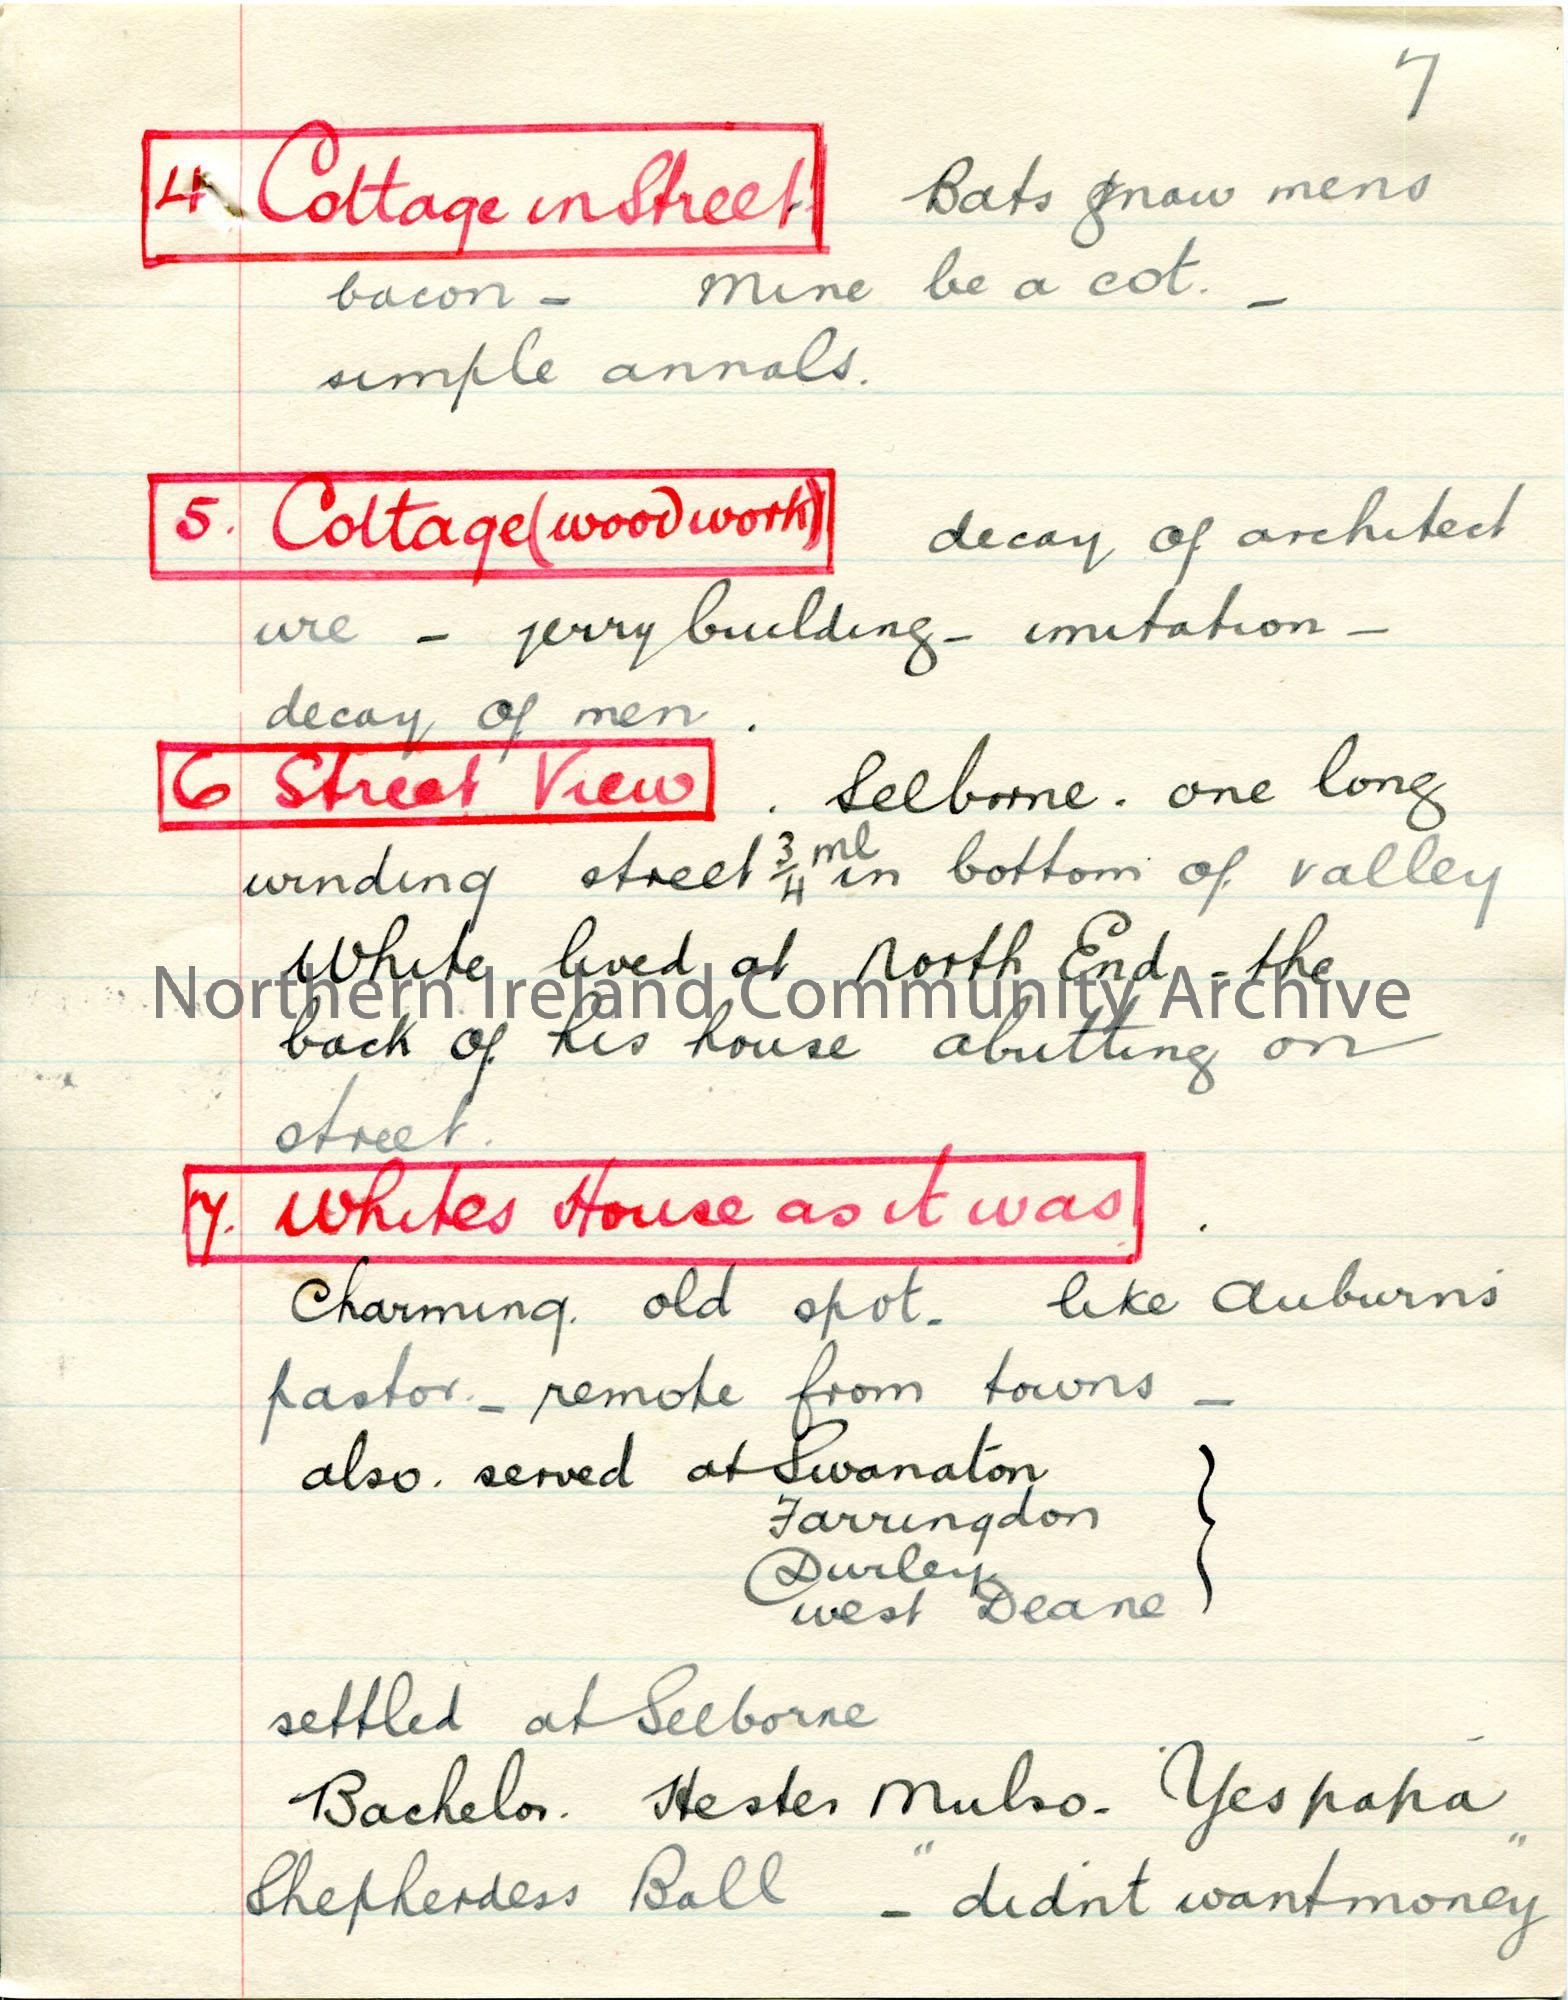 7
4 Cottage in Street Bats gnaw mens
bacon - Mine be a cot. -
simple annals.
5. Cottage (woodwork) decay of architect
ure - jerry building - imitation -
decay of men.
6 Street View . Selborne. one long
winding street 3/4 ml in bottom of valley
White lived at North End - the
Northern Ireland Community Archive
back of his house abutting on
street.
7. Whites House as it was .
Charming old spot - like Auburns
pastor - remote from towns -
also served at Swanaton
Farringdon
Durley
West Deane
settled at Selborne
Bachelor. Hester Mulso - "Yes papa"
Shepherdess Ball - "didnt want money"